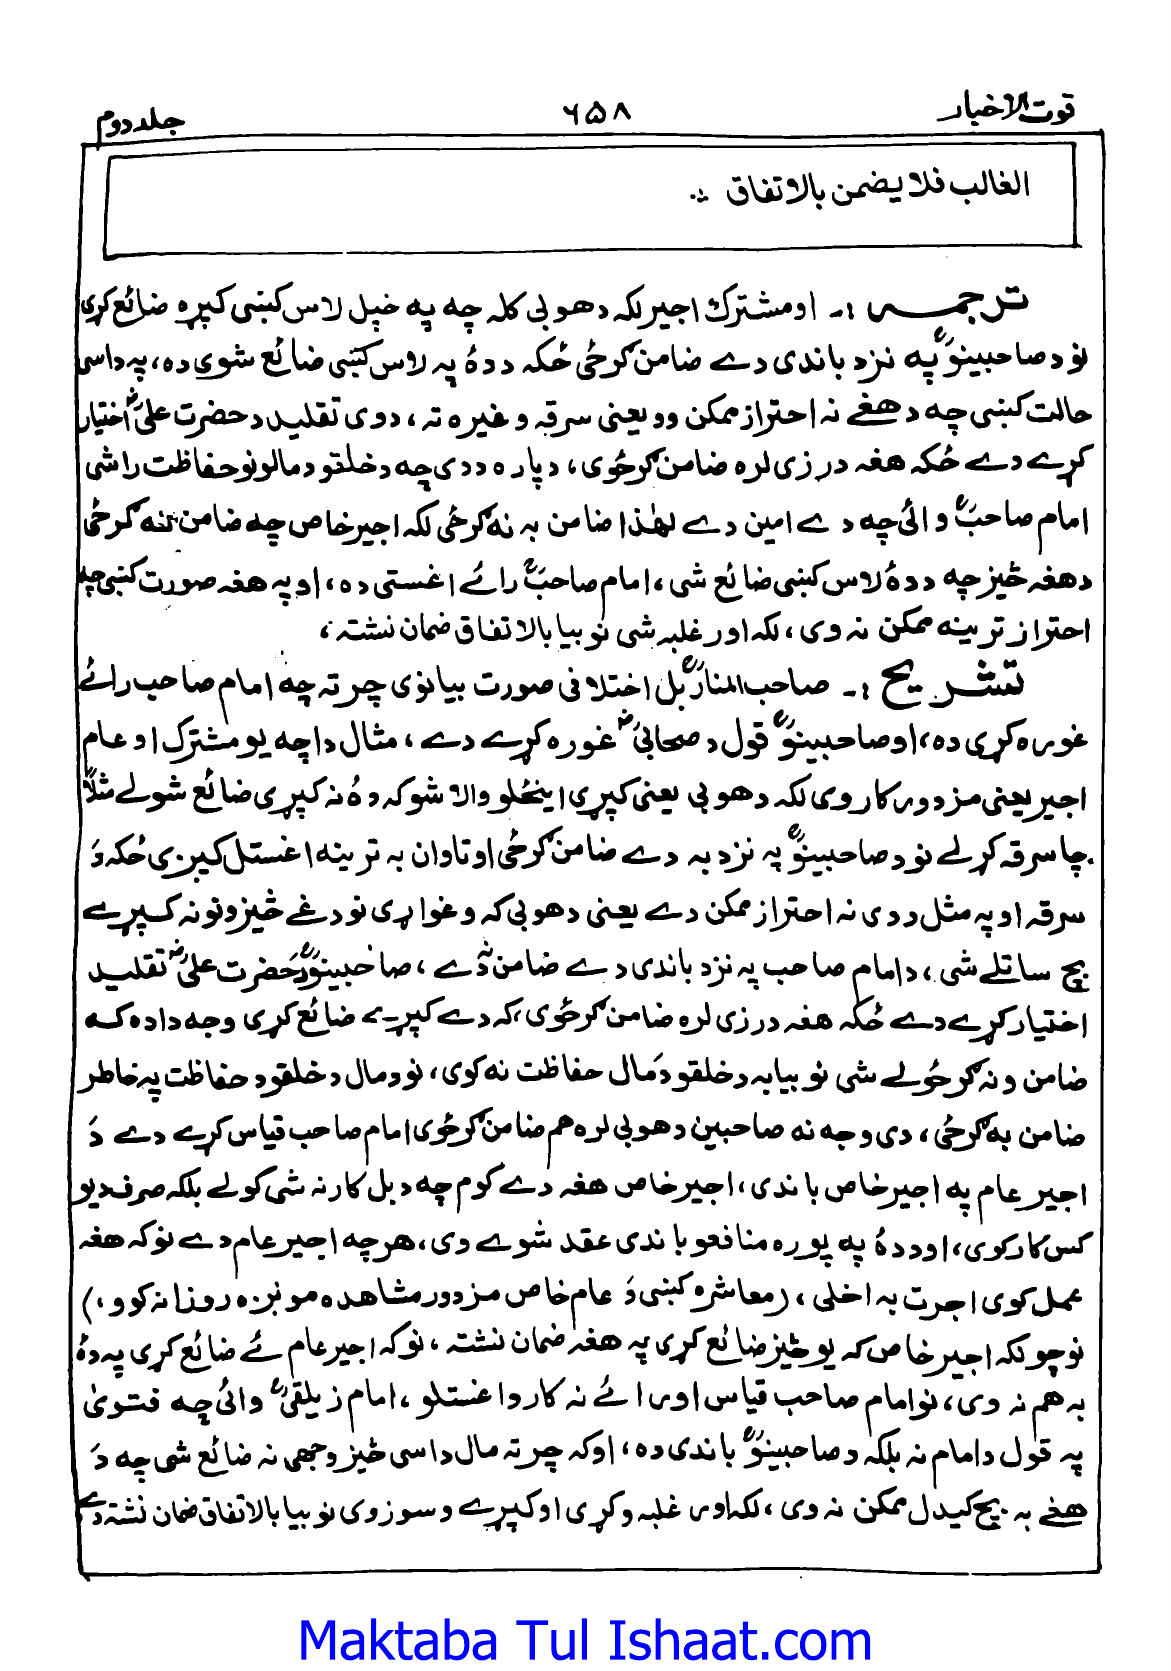 قوت الاخبار ۶۵۸ جلد دوم
الغالب فلا يضمن بالاتفاق ؞
ترجمہ :۔ او مشترك اجير لکہ دهوبی کلہ چہ پہ خپل لاس کښی کپړه ضائع کړی
نو د صاحبینوؒ پہ نزد باندی دے ضامن ګرځی ځکہ د دۀ پہ لاس کښی ضائع شوی ده، پہ داسی
حالت کښی چہ د هغے نہ احتراز ممکن وو یعنی سرقہ وغیره تہ، دوی تقلید د حضرت علیؓ اختیار
کړے دے ځکہ هغہ درزی لره ضامن ګرځوی، د پاره د دی چہ د خلقو د مالونو حفاظت راشی
امام صاحبؒ وائی چہ دے امین دے لهٰذا ضامن بہ نہ ګرځی لکہ اجیر خاص چہ ضامن نہ ګرځی
د هغہ څیز چہ د دۀ لاس کښی ضائع شی، امام صاحبؒ رائے اغستی ده، او پہ هغہ صورت کښی چہ
احتراز ترینہ ممکن نہ وی، لکہ اور غلبہ شی نو بیا بالاتفاق ضمان نشتہ،
تشریح :۔ صاحب المنارؒ بل اختلافی صورت بیانوی چرتہ چہ امام صاحب رائے
غوره کړی ده، او صاحبینوؒ قول د صحابیؓ غوره کړے دے، مثال دا چہ یو مشترك او عام
اجیر یعنی مزدور کار وی لکہ دهوبی یعنی کپړی اینځلو والا شو کہ دۀ نہ کپړی ضائع شولے مثلاً
چا سرقہ کړلے نو د صاحبینوؒ پہ نزد بہ دے ضامن ګرځی او تاوان بہ ترینہ اغستل کیږی ځکہ دَ
سرقہ او پہ مثل د دی نہ احتراز ممکن دے یعنی دهوبی کہ وغواړی نو دغے څیزونو نہ کپړے
بچ ساتلے شی، د امام صاحب پہ نزد باندی دے ضامن نہ دے، صاحبینوؒ د حضرت علیؓ تقلید
اختیار کړے دے ځکہ هغہ درزی لره ضامن ګرځوی، کہ دے کپړے ضائع کړی وجہ دا ده کہ
ضامن ونہ ګرځولے شی نو بیا بہ د خلقو دَ مال حفاظت نہ کوی، نو د مال د خلقو د حفاظت پہ خاطر
ضامن بہ ګرځی، دی وجہ نہ صاحبین دهوبی لره هم ضامن ګرځوی امام صاحب قیاس کړے دے دَ
اجیر عام پہ اجیر خاص باندی، اجیر خاص هغہ دے کوم چہ د بل کار نہ شی کولے بلکہ صرف د یو
کس کار کوی، او د دۀ پہ پوره منافعو باندی عقد شوے وی، هر چہ اجیر عام دے نو کہ هغہ
عمل کوی اجرت بہ اخلی، (معاشره کښی دَ عام خاص مزدور مشاهده مونږه روزانہ کوو،)
نو چونکہ اجیر خاص کہ یو څیز ضائع کړی پہ هغہ ضمان نشتہ، نو کہ اجیر عام ئے ضائع کړی پہ دۀ
بہ هم نہ وی، نو امام صاحب قیاس او رائے نہ کار واغستلو، امام زیلقیؒ وائی چہ فتویٰ
پہ قول د امام نہ بلکہ د صاحبینوؒ باندی ده، او کہ چرتہ مال داسی څیز وجهی نہ ضائع شی چہ دَ
هغے نہ بچ کیدل ممکن نہ وی، لکہ اور غلبہ وکړی او کپړے وسوزوی نو بیا بالاتفاق ضمان نشتہ دے
Maktaba Tul Ishaat.com